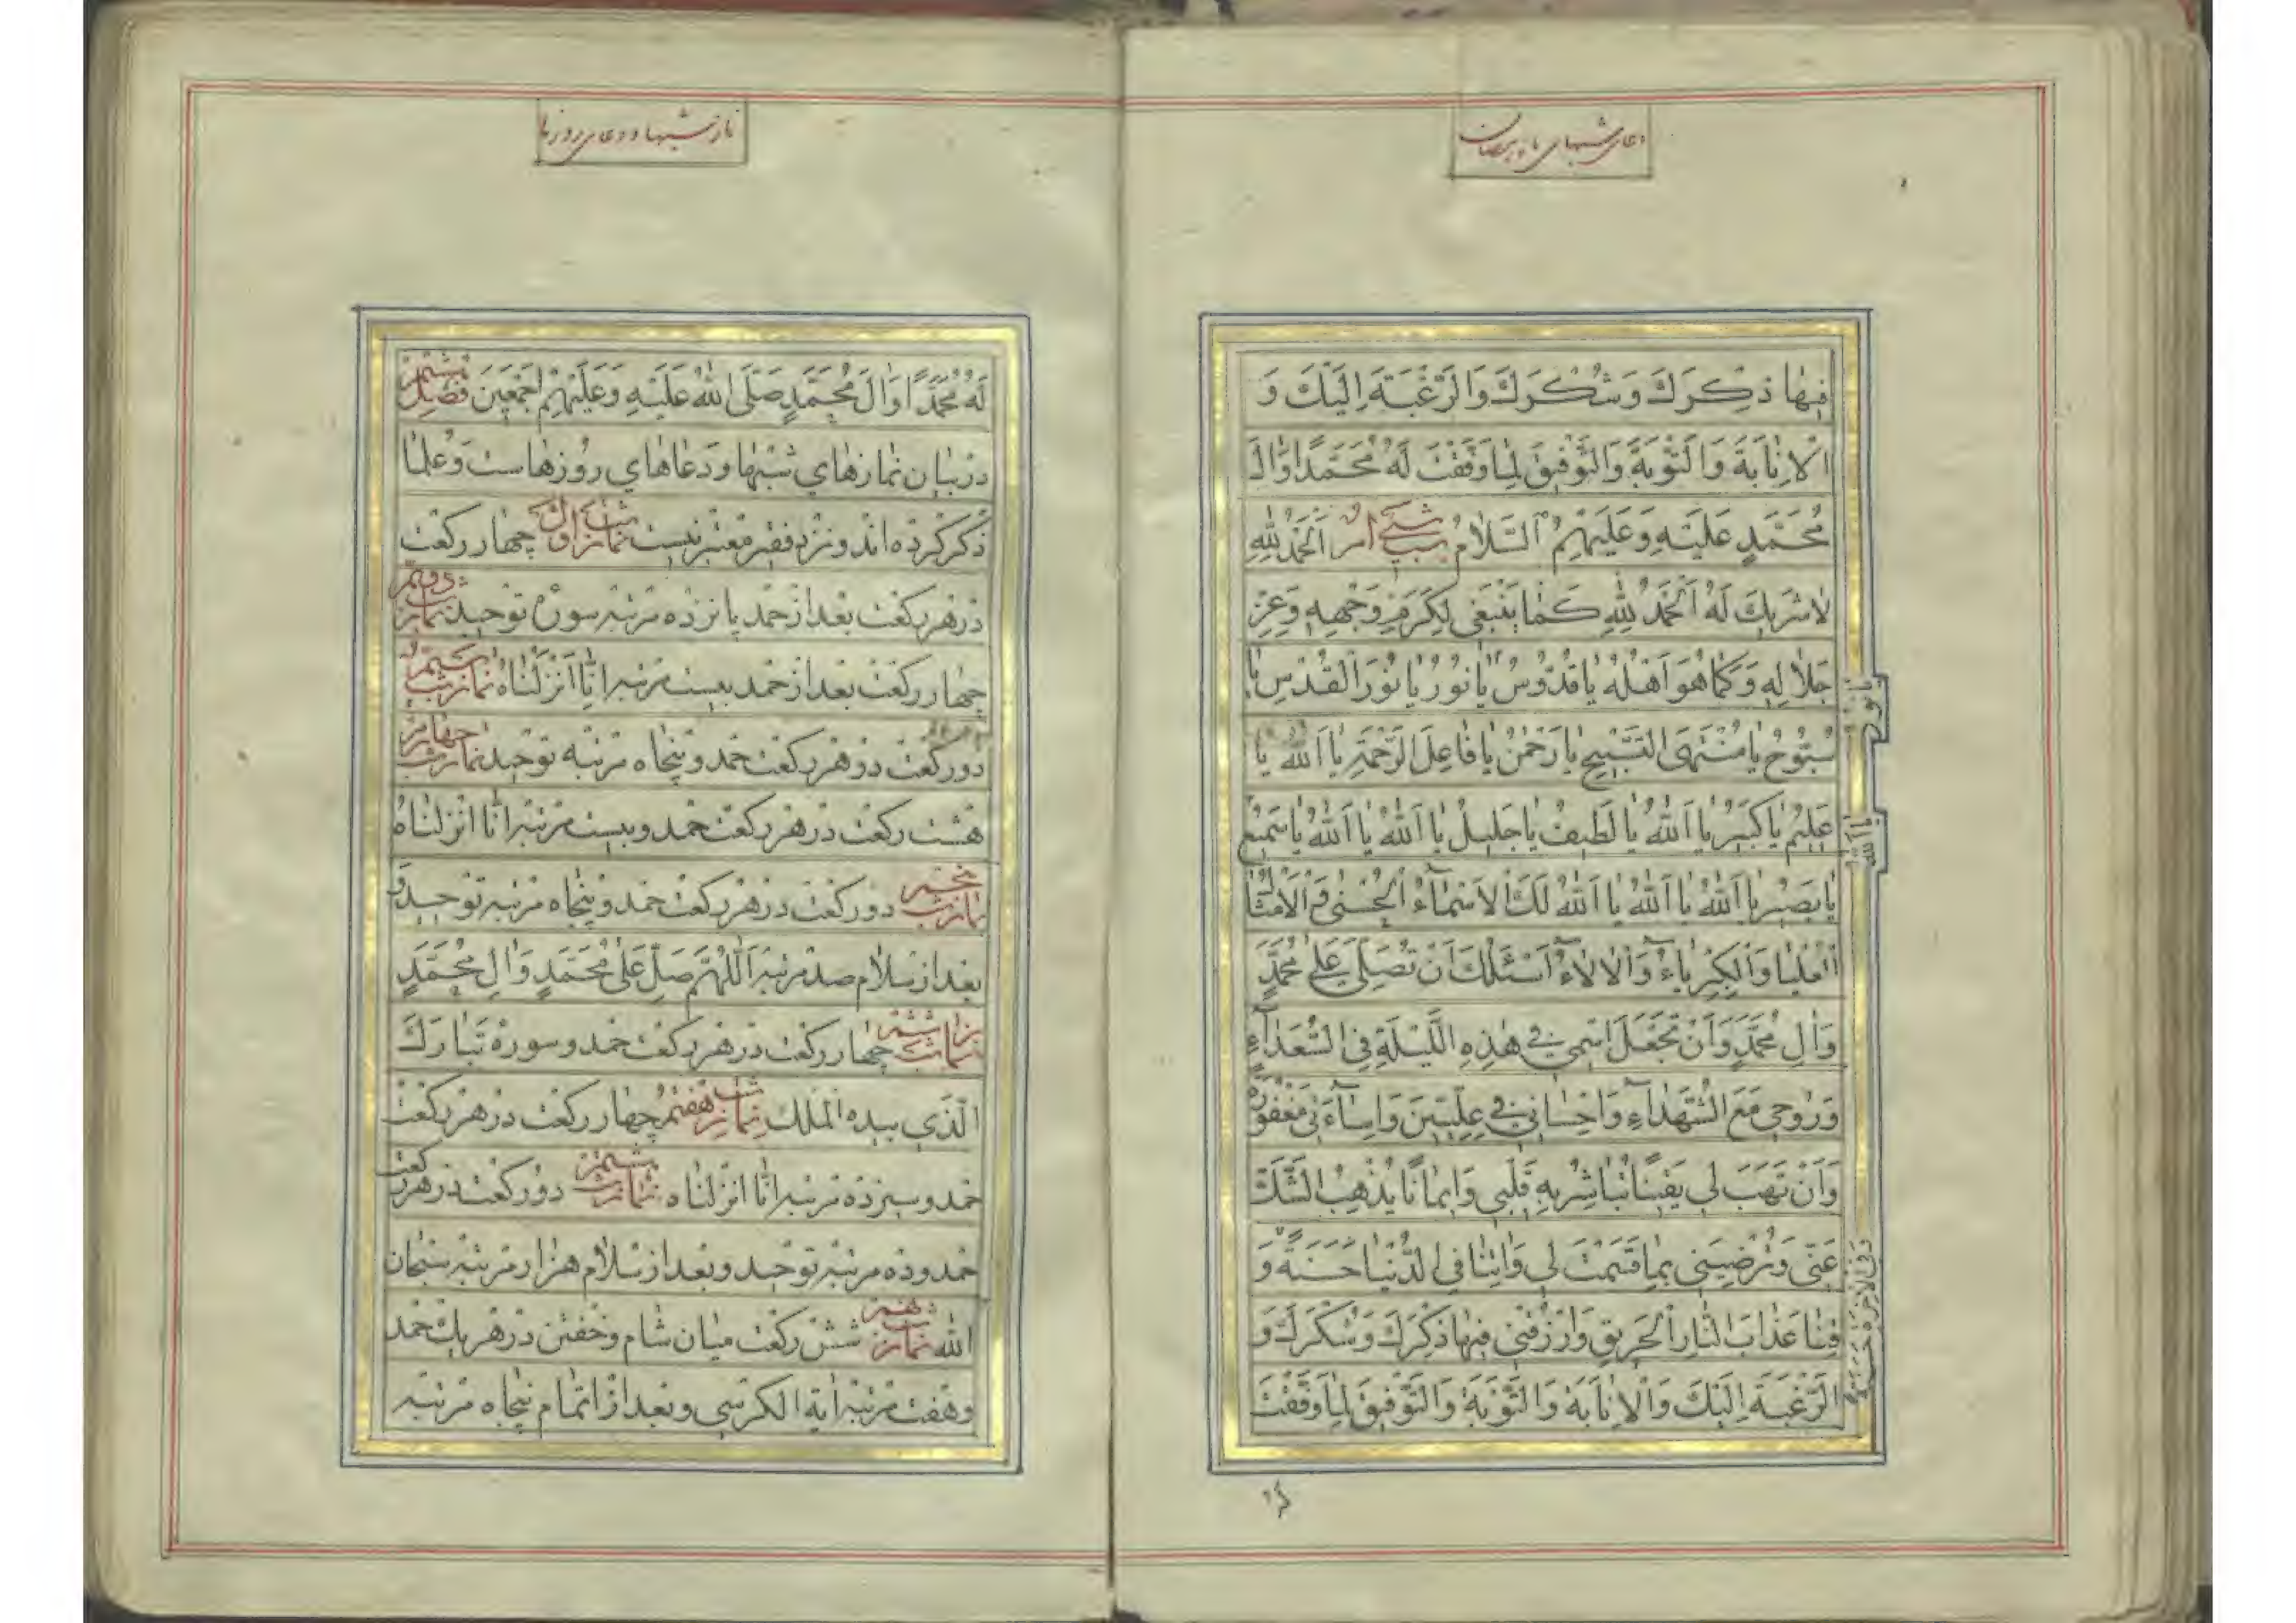 دعای شبهای ماه رمضان
فِيهَا ذِكْرَكَ وَشُكْرَكَ وَالرَّغْبَةَ اِلَيْكَ وَ
الْاِنَابَةَ وَالتَّوْبَةَ وَالتَّوْفِيقَ لِمَا وَفَّقْتَ لَهُ مُحَمَّدًا وَالَ
مُحَمَّدٍ عَلَيْهِ وَعَلَيْهِمُ السَّلَامُ شب سی ام اَلْحَمْدُ لِلّٰهِ
لَا شَرِيكَ لَهُ اَلْحَمْدُ لِلّٰهِ كَمَا يَنْبَغِي لِكَرَمِ وَجْهِهِ وَعِزِّ
جَلَالِهِ وَكَمَا هُوَ اَهْلُهُ يَا قُدُّوسُ يَا نُورُ يَا نُورَ الْقُدْسِ يَا
سُبُّوحُ يَا مُنْتَهَى التَّسْبِيحِ يَا رَحْمٰنُ يَا فَاعِلَ الرَّحْمَةِ يَا اَللّٰهُ يَا
عَلِيمُ يَا كَبِيرُ يَا اَللّٰهُ يَا لَطِيفُ يَا جَلِيلُ يَا اَللّٰهُ يَا اَللّٰهُ يَا سَمِيعُ
يَا بَصِيرُ يَا اَللّٰهُ يَا اَللّٰهُ يَا اَللّٰهُ لَكَ الْاَسْمَاءُ الْحُسْنٰى وَالْاَمْثَالُ
الْعُلْيَا وَالْكِبْرِيَاءُ وَالْاٰلَاءُ اَسْئَلُكَ اَنْ تُصَلِّيَ عَلٰى مُحَمَّدٍ
وَالِ مُحَمَّدٍ وَاَنْ تَجْعَلَ اسْمِي فِي هٰذِهِ اللَّيْلَةِ فِي السُّعَدَاءِ
وَرُوحِي مَعَ الشُّهَدَاءِ وَاِحْسَانِي فِي عِلِّيِّينَ وَاِسَاءَتِي مَغْفُورَةً
وَاَنْ تَهَبَ لِي يَقِينًا تُبَاشِرُ بِهِ قَلْبِي وَاِيمَانًا يُذْهِبُ الشَّكَّ
عَنِّي وَتُرْضِيَنِي بِمَا قَسَمْتَ لِي وَاٰتِنَا فِي الدُّنْيَا حَسَنَةً وَ
فِي الْاٰخِرَةِ حَسَنَةً
قِنَا عَذَابَ النَّارِ الْحَرِيقِ وَارْزُقْنِي فِيهَا ذِكْرَكَ وَشُكْرَكَ وَ
الرَّغْبَةَ اِلَيْكَ وَالْاِنَابَةَ وَالتَّوْبَةَ وَالتَّوْفِيقَ لِمَا وَفَّقْتَ
نماز شبها و دعای روزها
لَهُ مُحَمَّدًا وَالَ مُحَمَّدٍ صَلَّى اللّٰهُ عَلَيْهِ وَعَلَيْهِمْ اَجْمَعِينَ فصل
در بيان نمازهاي شبها و دعاهاي روزهاست و علما
ذكر كرده اند و نزد فقير معتبر نيست نماز شب اول چهار ركعت
در هر ركعت بعد از حمد پانزده مرتبه سوره توحيد نماز شب دويم
چهار ركعت بعد از حمد بيست مرتبه انا انزلناه نماز شب سيم
دو ركعت در هر ركعت حمد و پنجاه مرتبه توحيد نماز شب چهارم
هشت ركعت در هر ركعت حمد و بيست مرتبه انا انزلناه
نماز شب پنجم دو ركعت در هر ركعت حمد و پنجاه مرتبه توحيد و
بعد از سلام صد مرتبه اَللّٰهُمَّ صَلِّ عَلٰى مُحَمَّدٍ وَالِ مُحَمَّدٍ
نماز شب ششم چهار ركعت در هر ركعت حمد و سوره تبارك
الذي بيده الملك نماز شب هفتم چهار ركعت در هر ركعت
حمد و سيزده مرتبه انا انزلناه نماز شب هشتم دو ركعت در هر ركعت
حمد و ده مرتبه توحيد و بعد از سلام هزار مرتبه سبحان
الله نماز شب نهم شش ركعت ميان شام و خفتن در هر يك حمد
و هفت مرتبه اية الكرسي و بعد از اتمام پنجاه مرتبه